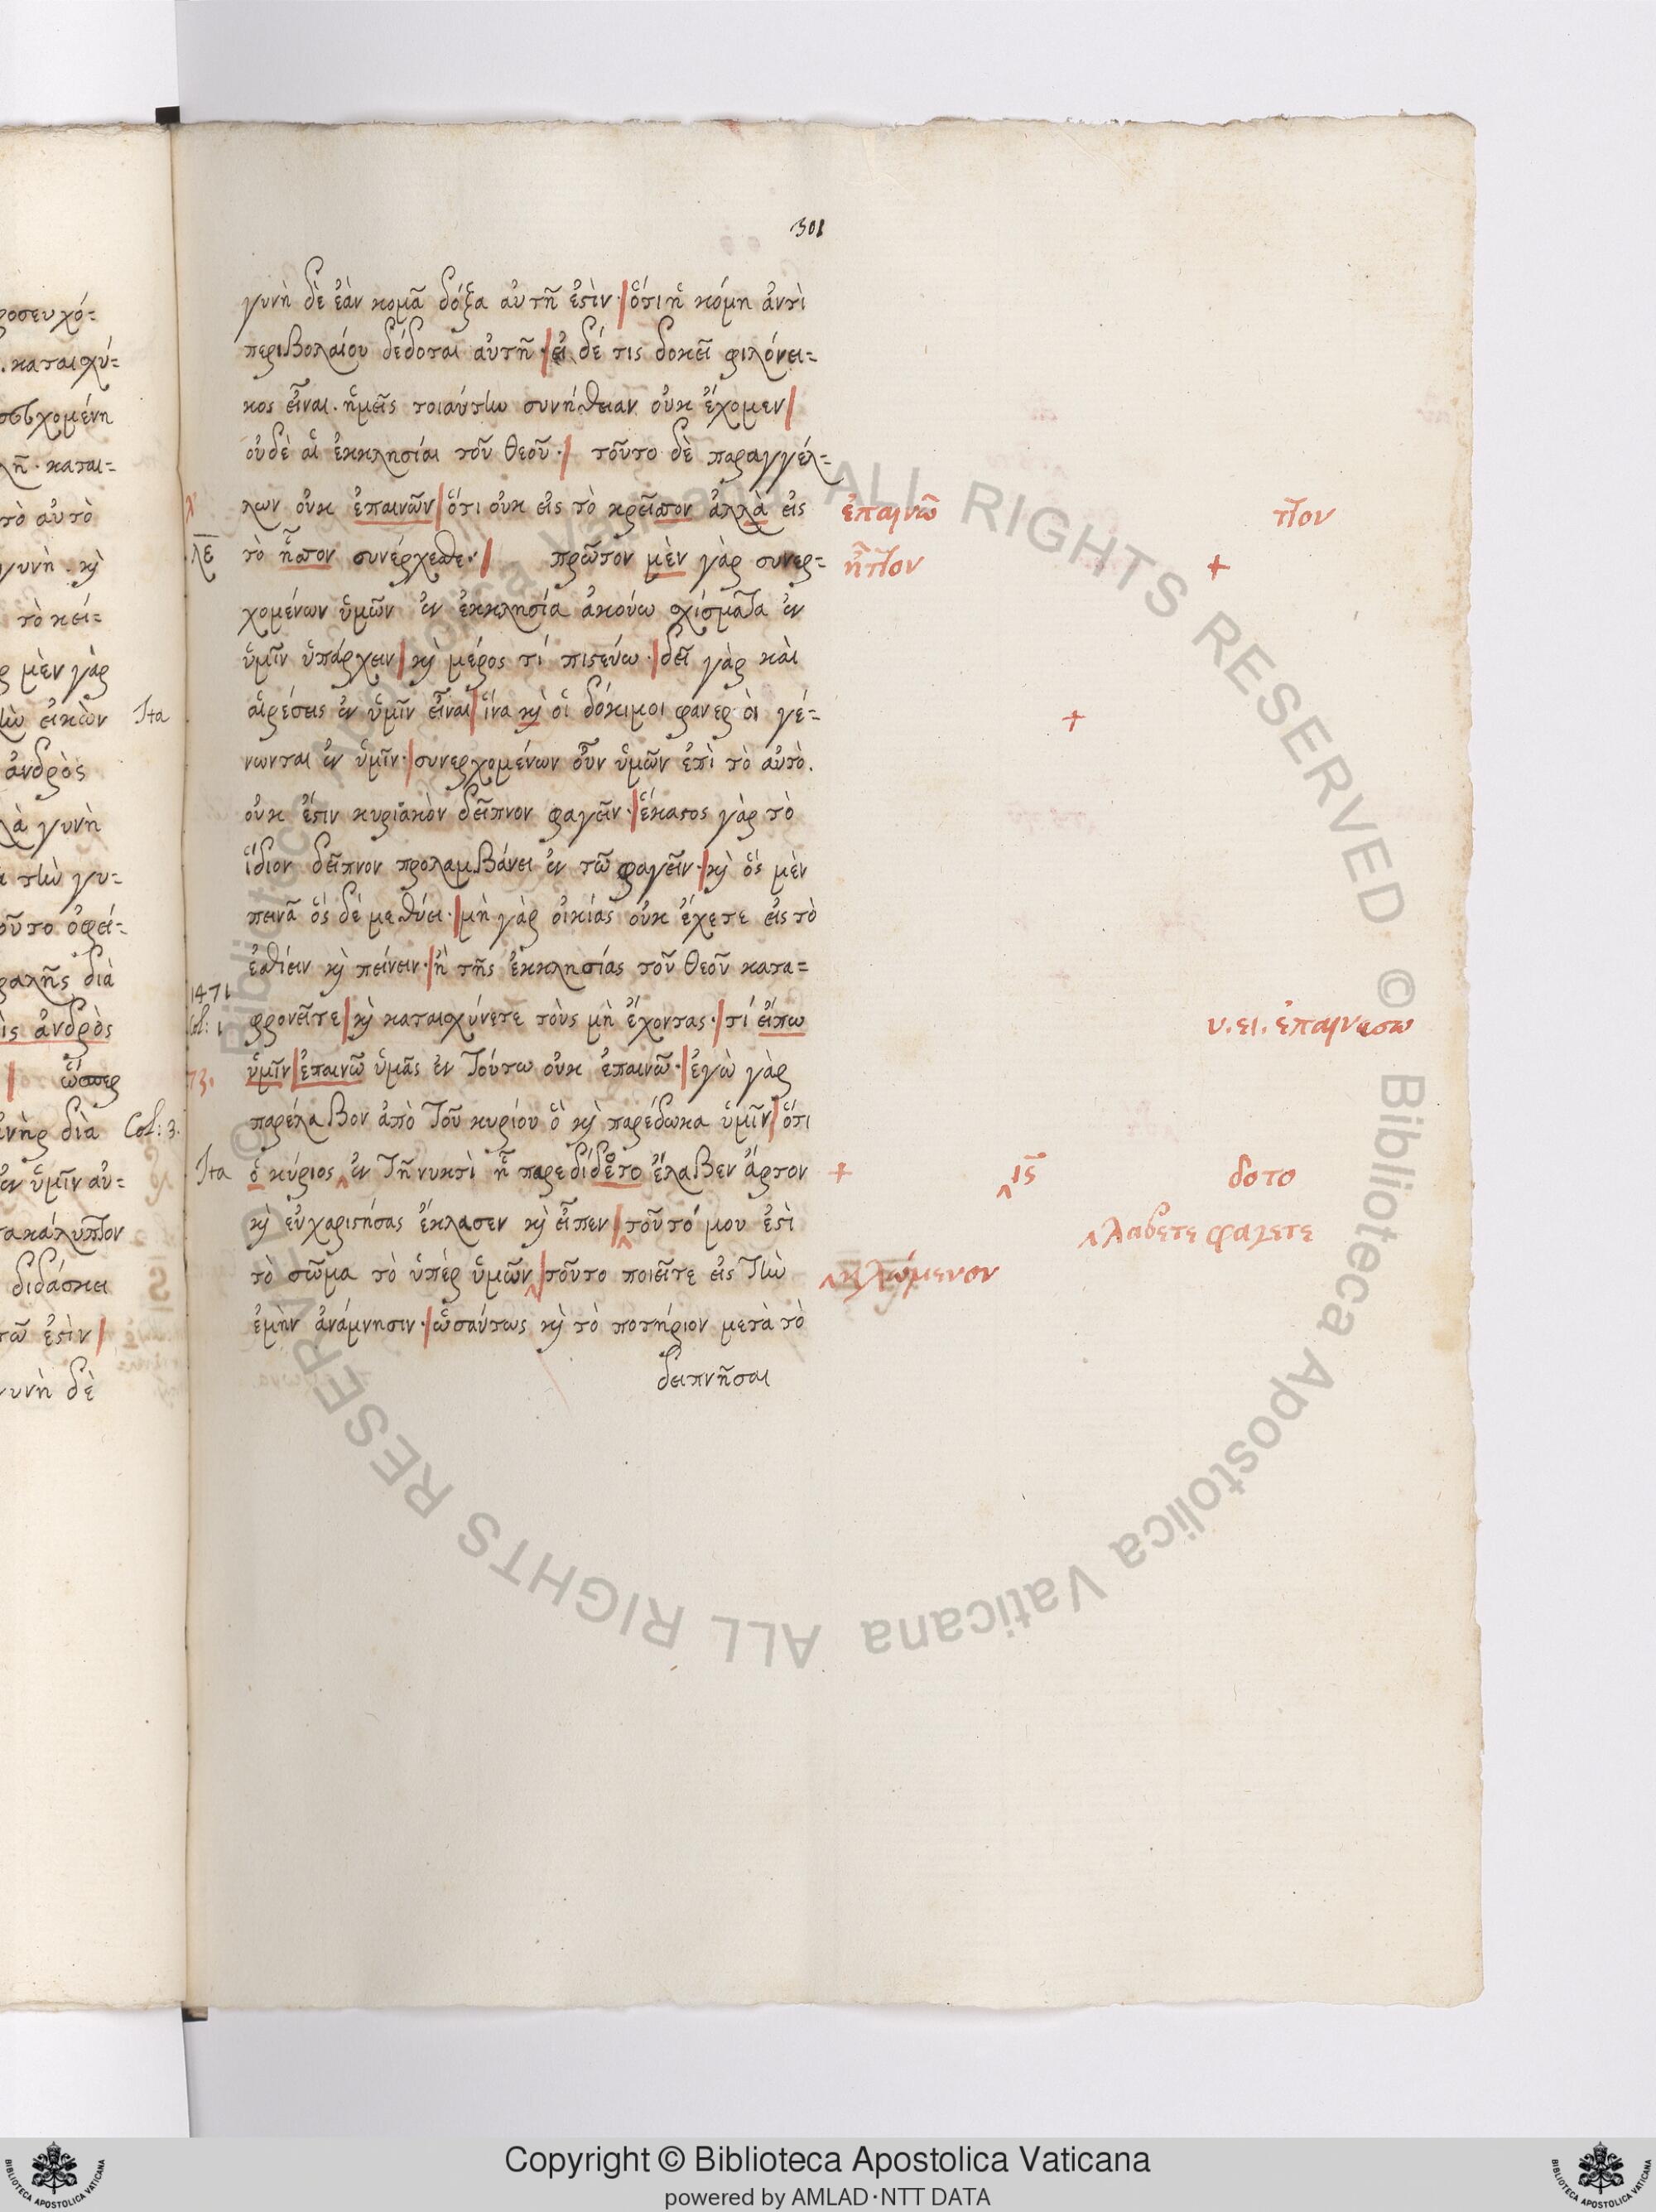 ροσευχό=
.καταισχύ=
χομένη
λῆ· καται=
τὸ αὐτὸ
γυνὴ. κὶ
τὸ κεί=
μὲν γὰρ
εἰκὼν Ita
ἀνδρὸς
λὰ γυνὴ
τὴν γυ=
οῦτο ὀφεί=
φαλῆς διὰ
ἀνδρὸς
ὥσπερ
ἀνὴρ διὰ Col: 3.
ἐν ὑμῖν αὐ=
τακάλυπτον
διδάσκει
τῶ ἐστὶν
γυνὴ δὲ
301
γυνὴ δὲ ἐὰν κομᾶ δόξα αὐτῆ ἐστὶν· ὅτι ἡ κόμη ἀντὶ
περιβολαίου δέδοται αὐτῆ· εἰ δέ τις δοκεῖ φιλόνει=
κος εἶναι. ἡμεῖς τοιαύτην συνήθειαν οὐκ ἔχομεν
οὐδὲ αἱ ἐκκλησίαι τοῦ θεοῦ· τοῦτο δὲ παραγγέλ=
λων οὐκ ἐπαινῶν ὅτι οὐκ εἰς τὸ κρεῖττον ἀλλὰ εἰς ἐπαινῶ τ͂τον
λε τὸ ἧττον συνέρχεσθε· πρῶτον μὲν γὰρ συνερ= ἧττον +
χομένων ὑμῶν ἐν ἐκκλησία ἀκούω σχίσματα ἐν
ὑμῖν ὑπάρχειν κὶ μέρος τί πιστεύω· δεῖ γὰρ καὶ
αἱρέσεις ἐν ὑμῖν εἶναι ἵνα κὶ οἱ δόκιμοι φανεροὶ γέ= +
νωνται ἐν ὑμῖν· συνερχομένων οὖν ὑμῶν ἐπὶ τὸ αὐτὸ.
οὐκ ἔστιν κυριακὸν δεῖπνον φαγεῖν· ἕκαστος γὰρ τὸ
ἴδιον δεῖπνον προλαμβάνει ἐν τῶ φαγεῖν· κὶ ὅς μὲν
πεινᾶ ὅς δὲ μεθύει· μὴ γὰρ οἰκίας οὐκ ἔχετε εἰς τὸ
ἐσθίειν κὶ πείνειν· ἢ τῆς ἐκκλησίας τοῦ θεοῦ κατα=
1471
Col: 1 φρονεῖτε κὶ καταισχύνετε τοὺς μὴ ἔχοντας· τί εἴπω υ. ει. ἐπαινεσω
73. ὑμῖν ἐπαινῶ ὑμᾶς ἐν τούτω οὐκ ἐπαινῶ· ἐγὼ γὰρ
παρέλαβον ἀπὸ τοῦ κυρίου ὃ κὶ παρέδωκα ὑμῖν ὅτι
Ita ὁ κύριος ‸ ἐν τῆ νυκτὶ ἧ παρεδίδετο ἔλαβεν ἄρτον + ‸ ις δοτο
κὶ εὐχαριστήσας ἔκλασεν κὶ εἶπεν ‸ τοῦτό μου ἐστὶ ‸ λαβετε φαγετε
τὸ σῶμα τὸ ὑπέρ ὑμῶν ‸ τοῦτο ποιεῖτε εἰς τὴν ‸ κλώμενον
ἐμὴν ἀνάμνησιν· ὡσαύτως κὶ τὸ ποτήριον μετὰ τὸ
δειπνῆσαι
© Biblioteca Apostolica Vaticana ALL RIGHTS RESERVED © Biblioteca Apostolica Vaticana ALL RIGHTS RESERVED
Copyright © Biblioteca Apostolica Vaticana
powered by AMLAD·NTT DATA
BIBLIOTECA APOSTOLICA VATICANA
BIBLIOTECA APOSTOLICA VATICANA